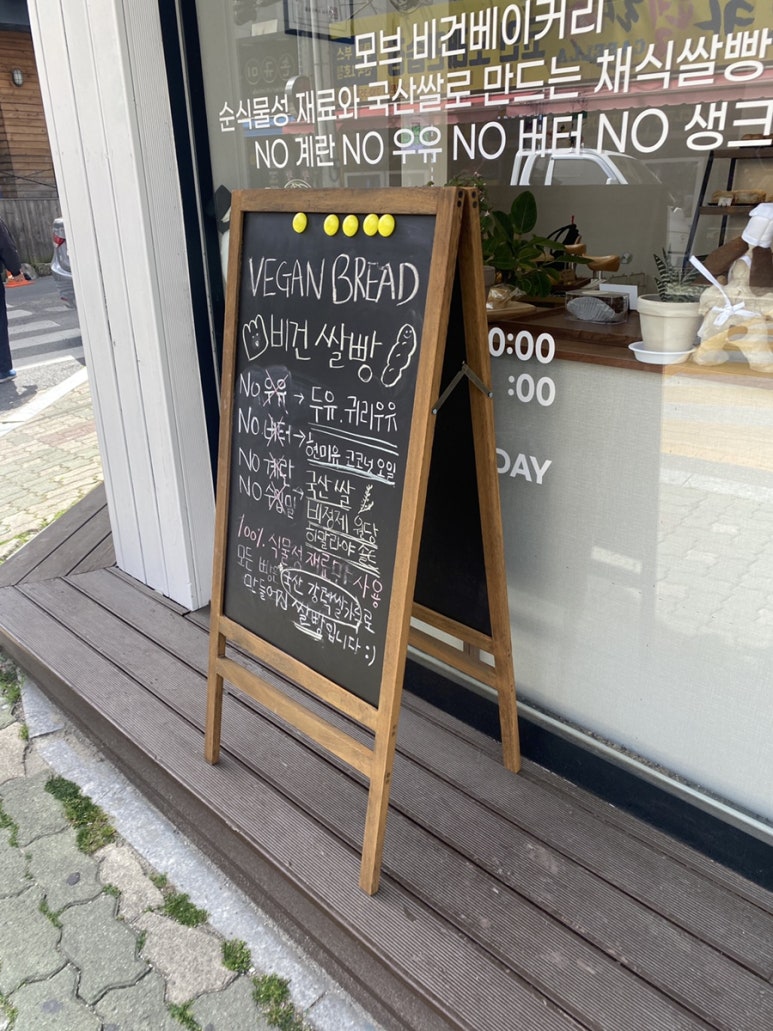 모브 비건베이커리
순식물성 재료와 국산쌀로 만드는 채식쌀빵
NO 계란 NO 우유 NO 버터 NO 생크
VEGAN BREAD
비건 쌀빵
NO 우유 → 두유.귀리우유
NO 버터 → 현미유 코코넛오일
NO 계란
NO 수입밀 → 국산 쌀
비정제 원당
히말라야 솔트
100% 식물성 재료만 사용
모든 빵은 국산 강력쌀가루로
만들어진 쌀빵입니다 :)
0:00
:00
DAY